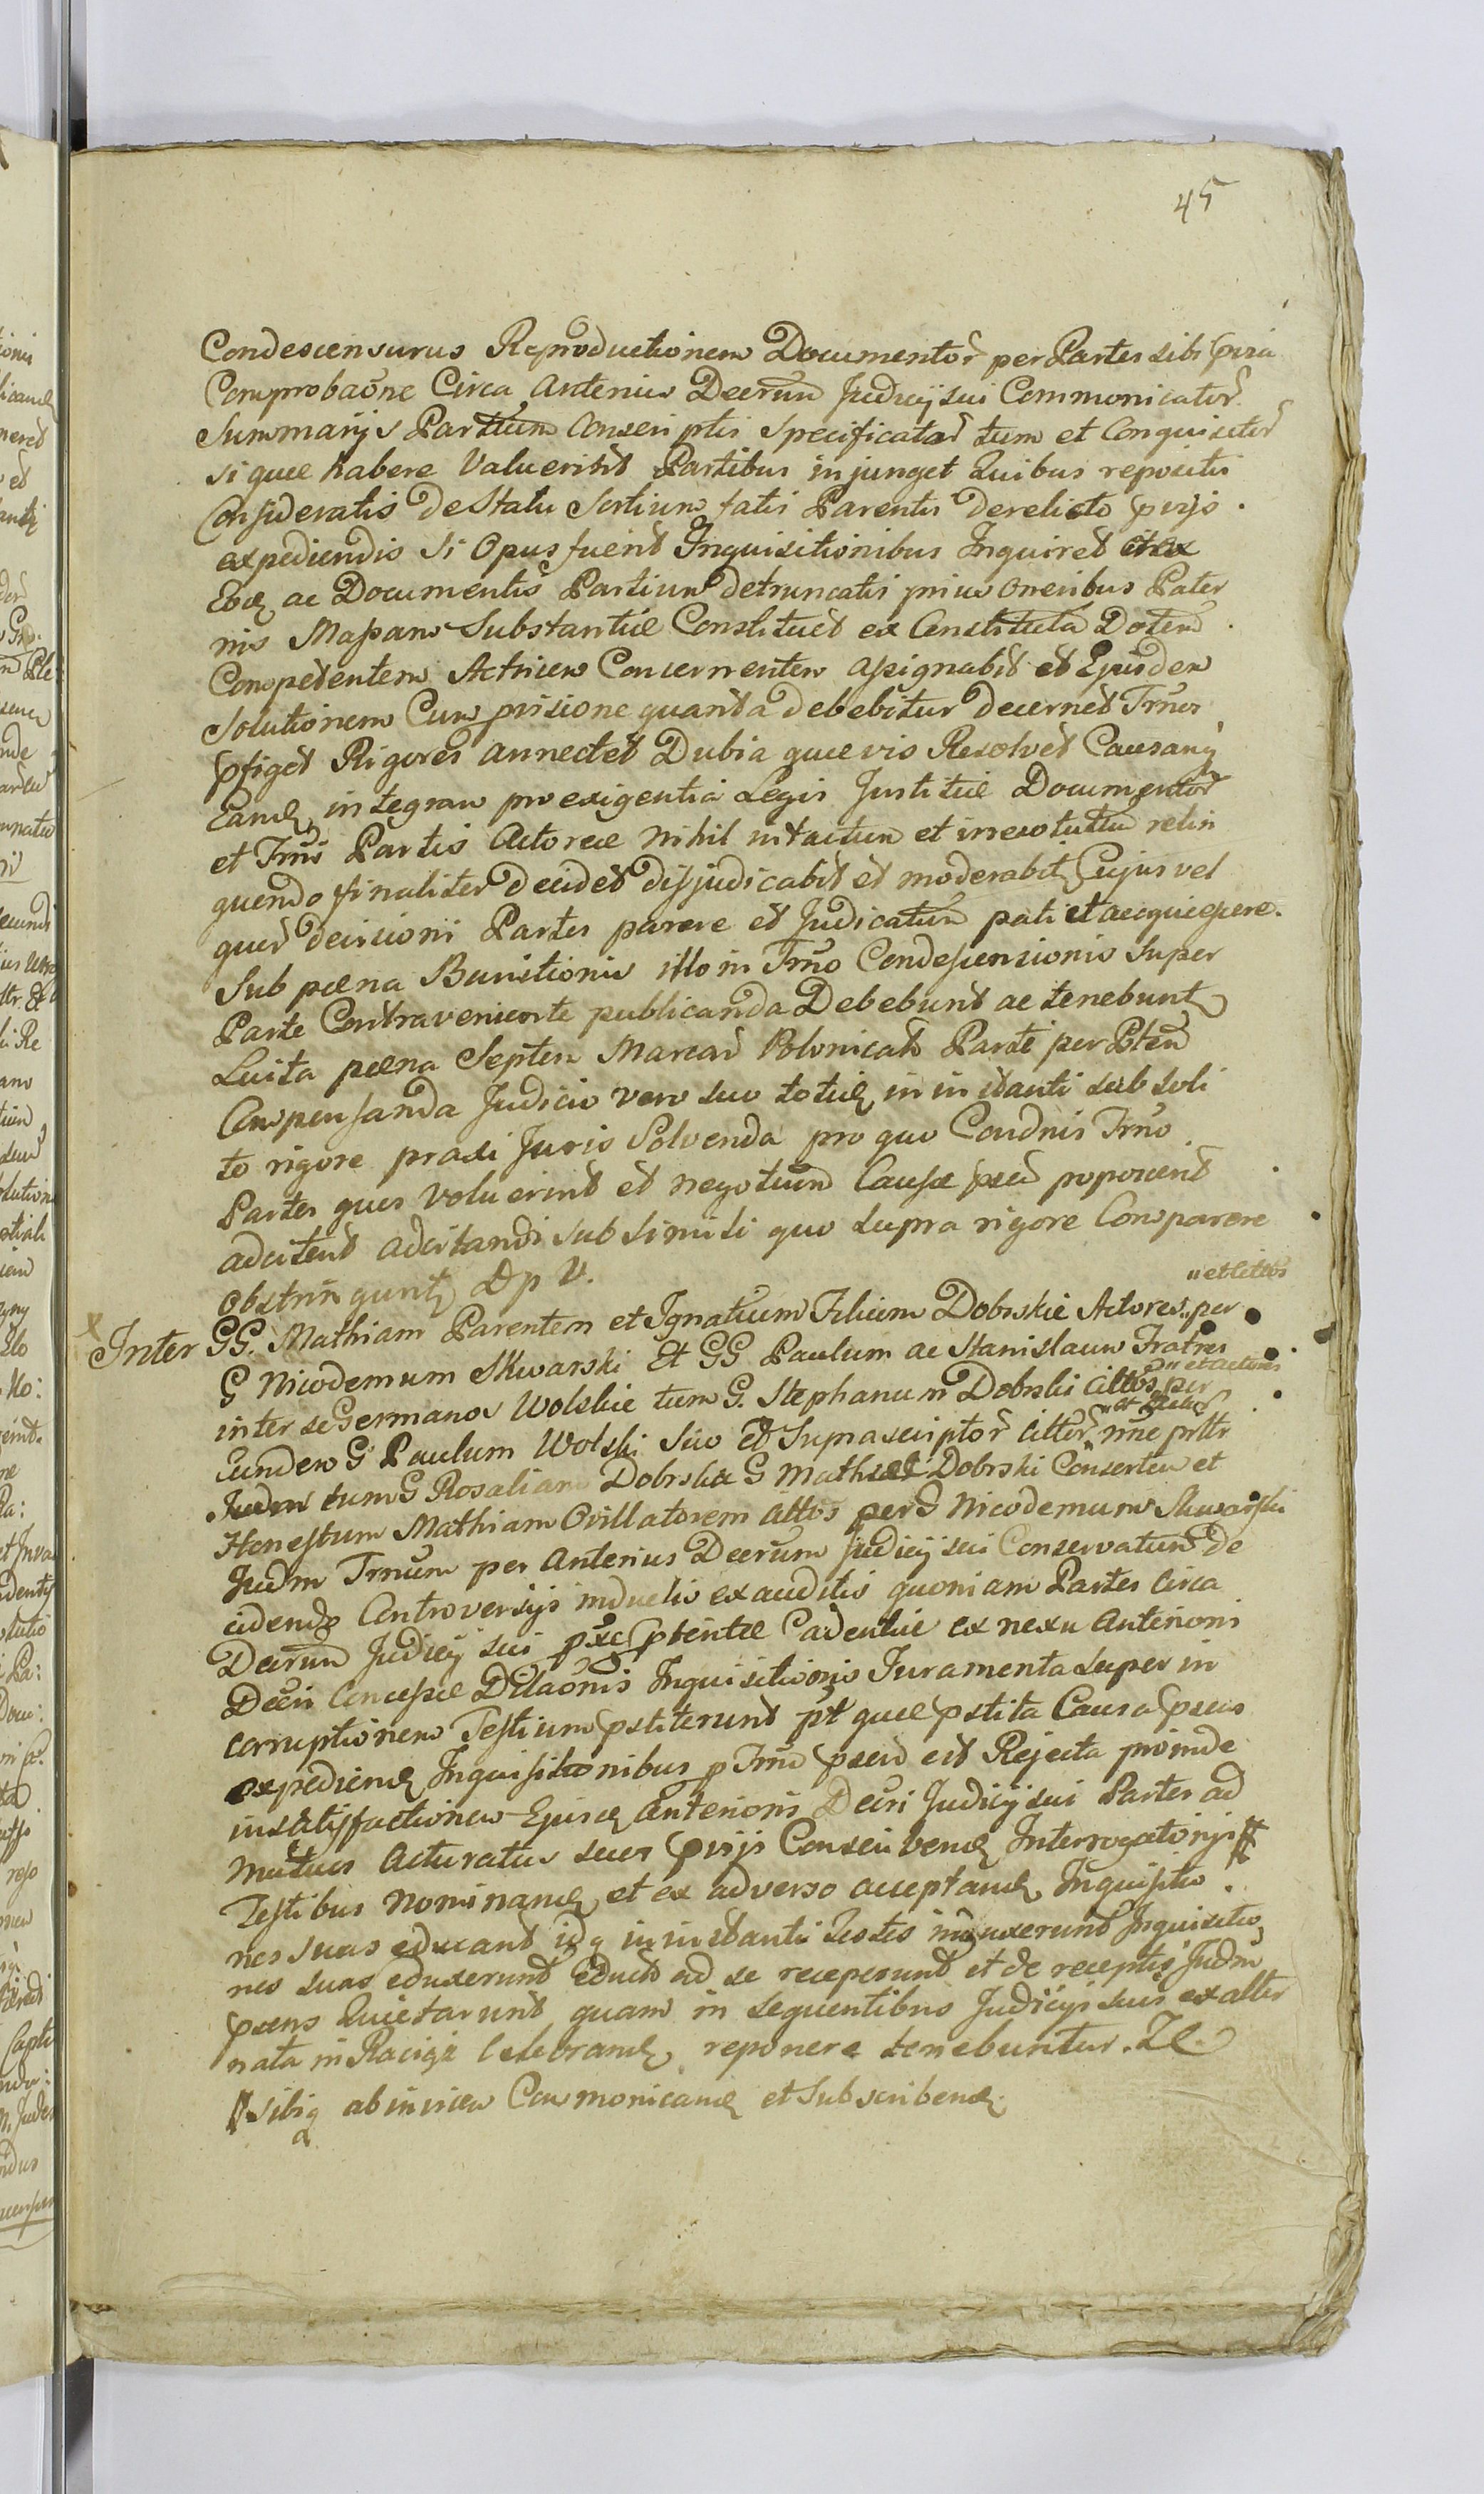 45
Condescensurus Reproductionem Documentor per Partes sibi
Comprobaōne Circa Anterius Decrūm Judicij sui Commonicator
Summarijs Partium Conscriptis Specificatar tum et Conquisitor
si quae habere Valuerint Partibus injunget Quibus repositis
Consideratis de Statu Sortium fatis Parentis derelicto pvijs
expediendis si Opus fuerit Inquisitionibus Inquiret et ex
Eoq ac Documentis Partium detruncatis prius oneribus Pater
nis Massam Substantiae Constituet ex Constituta Dotem
Competentem Actricem Concernentem assignabit et Ejusdem
Solutionem Cum prisione quanta debebitur decernet Trnos
pfiget Rigores annectet Dubia quaevis Resolvet Causamq
Eamq integram pro exigentia Legis Justitiae Documentor
et Trnis Partis Actoreae nihil intactum et irrevolutum relin
quendo finaliter decidet disjudicabit et moderabit Cujus vel
quor decisioni Partes parere et Judicatum pati et acquiescere
Sub paena Bannitionis illo in Trno Condescensionis super
Parte Contraveniente publicanda Debebunt ac tenebunt
Luita paena Septem Marcar Polonicar Parti per Ptem
Compensanda Judicio vero suo totiq in instanti sub soli
to rigore praxi Juris Solvenda pro quo Condnis Trno
Partes quos voluerint et negotium Causae psens poposcerit
adcitent adcitandi sub simili quo supra rigore Comparere
obstringunt D p V.
"et citatos
Inter GG. Mathiam Parentem et Ignatium Filium Dobrskie Actores " per
G Nicodemum Skwarski Et GG Paulum ac Stanislaum Fratres
inter se Germanos Wolskie tum G. Stephanum Dobrski cittos " et actores per
Eundem G Paulum Wolski suo et Suprascriptor cittor nne prttr
Judm tum G Rosaliam Dobrska G Mathiae Dobrski Consortem et
Honestum Mathiam Ovillatorem cittos per G Nicodemum Skwarski
Judm Trnum per Anterius Decrum Judicij sui Conservatum de
cidendo Controversijs inductis exauditis quoniam Partes Circa
Decrum Judicij sui ptentae Cadentiae ex nexu Anterioris
Decri Concessae Dilaōnis Inquisitionis Juramenta super in
corruptionem Testium pstiterunt pt quae pstita Causa psens
expediend Inquisitionibus p Trno psens est Rejecta proinde
in satisfactionem Ejusd anterioris Decri Judicij sui Partes ad
mutuos Acturatus suos pvijs Conscribend Interrogatorijs #
Testibus Nominand et ex adverso acceptand Inquisitio
nes suas educant idq in instanti Testes induxerunt Inquisitio
nes suas eduxerunt Eductas ad se receperunt et de receptis Judm
psens Quietarunt quam in sequentibus Judicijs suis ex alter
nata in Raciąż Celebrand reponere tenebuntur.
# sibiq ab invicem Commonicand et Subscribend